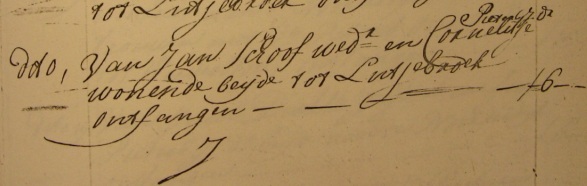 tot Lutjebroek
Ddo, Van Jan Schoof wedr en Cornelisje Pieters jd
wonende beyde tot Lutjebroek
ontfangen — — — 6 —
7